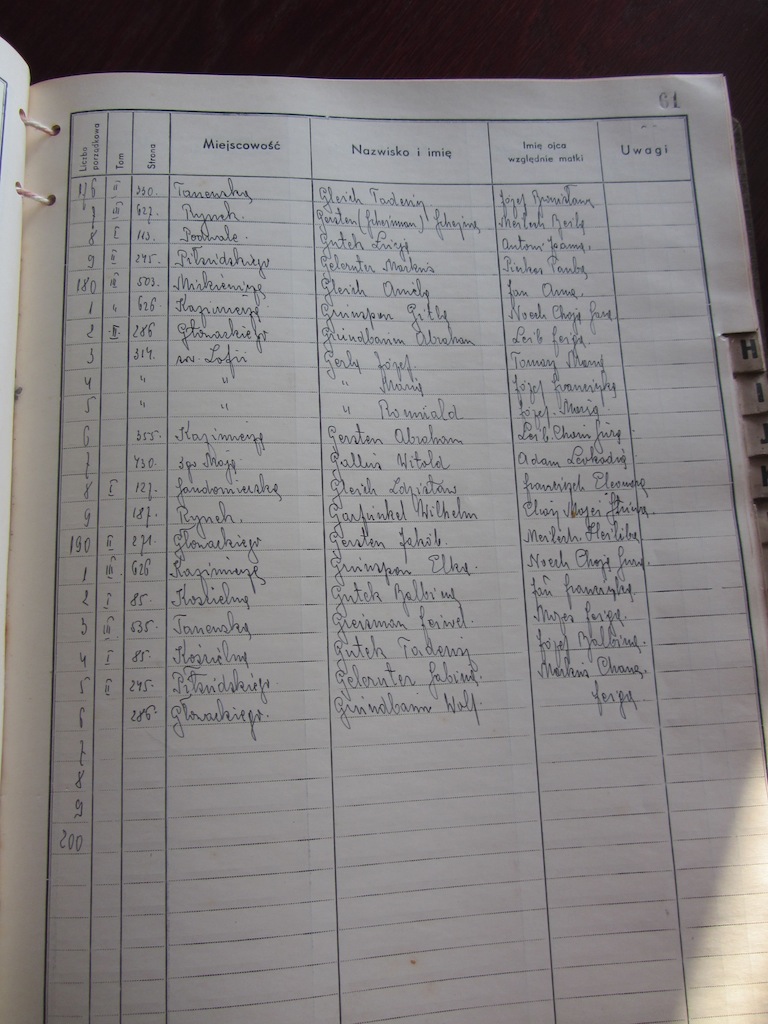 61
Liczba porządkowa Tom Strona Miejscowość Nazwisko i imię Imię ojca względnie matki Uwagi
176 II 330. Tanewska Gleich Tadeusz. Józef Bronisława
7 III 627. Rynek. Gersten (Scheinman) Meilech Beila
8 I 113. Podwale. Gutek Łucja Antoni Joanna.
9 II 245. Piłsudskiego Gelernter Markus Pinkas Tauba
180 III 503. Mickiewicza Gleich Amelia Jan Anna.
1 " 626. Kazimierza Grinspan Gitla Noech Chaja Sura
2 II 286 Głowackiego Grindbaum Abraham Leib Fejga
3 314. św. Zofii Gerla Józef. Tomasz Maria
4 " " " Maria Józef Franciszka
5 " " " Romuald Józef. Maria
6 355. Kazimierza Gersten Abraham Leib Sura
7 430. 3go Maja Gallus Witold Adam Leokadia
8 I 127. Sandomierska Gleich Zdzisław Franciszek Eleonora
9 187. Rynek. Garfinkel Wilhelm Mojżesz
190 II 271. Głowackiego Gersten Jakób. Meilech
1 III 626 Kazimierza Grinspan Elka. Noech Chaja Sura.
2 I 85. Kościelna Gutek Balbina Jan Franciszka
3 III 635. Tanewska Greisman Fejwel. Mozes Fejga.
4 I 85. Kościelna Gutek Tadeusz Józef Balbina.
5 II 245. Piłsudskiego. Gelernter Sabina. Markus Chana.
6 286. Głowackiego. Grindbaum Wolf. Fejga
7
8
9
200
H
I
J
K